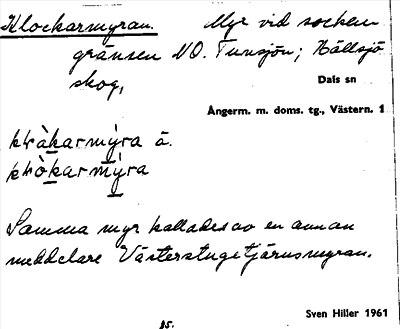 Klockarmyran. Myr vid socken
gränsen NO. Tunsjön; Hällsjö
skog,
Dals sn
Ångerm. m. doms. tg., Västern. 1
kɫàkarmýra å.
kɫòkarmýra
Samma myr kallades av en annan
meddelare Västerstugetjärnsmyran.
Sven Hiller 1961
25.